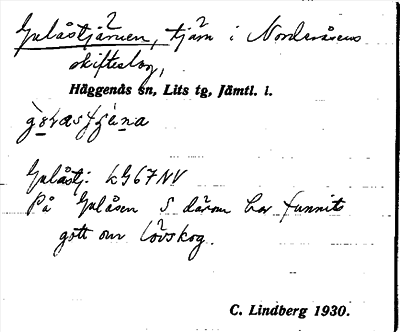 Gulåstjärnen, tjärn i Norderåsens
skifteslag,
Häggenås sn, Lits tg, Jämtl. l.
Gulåstj. LG67NV
På Gulåsen S därom har funnits
gott om lövskog.
C. Lindberg 1930.